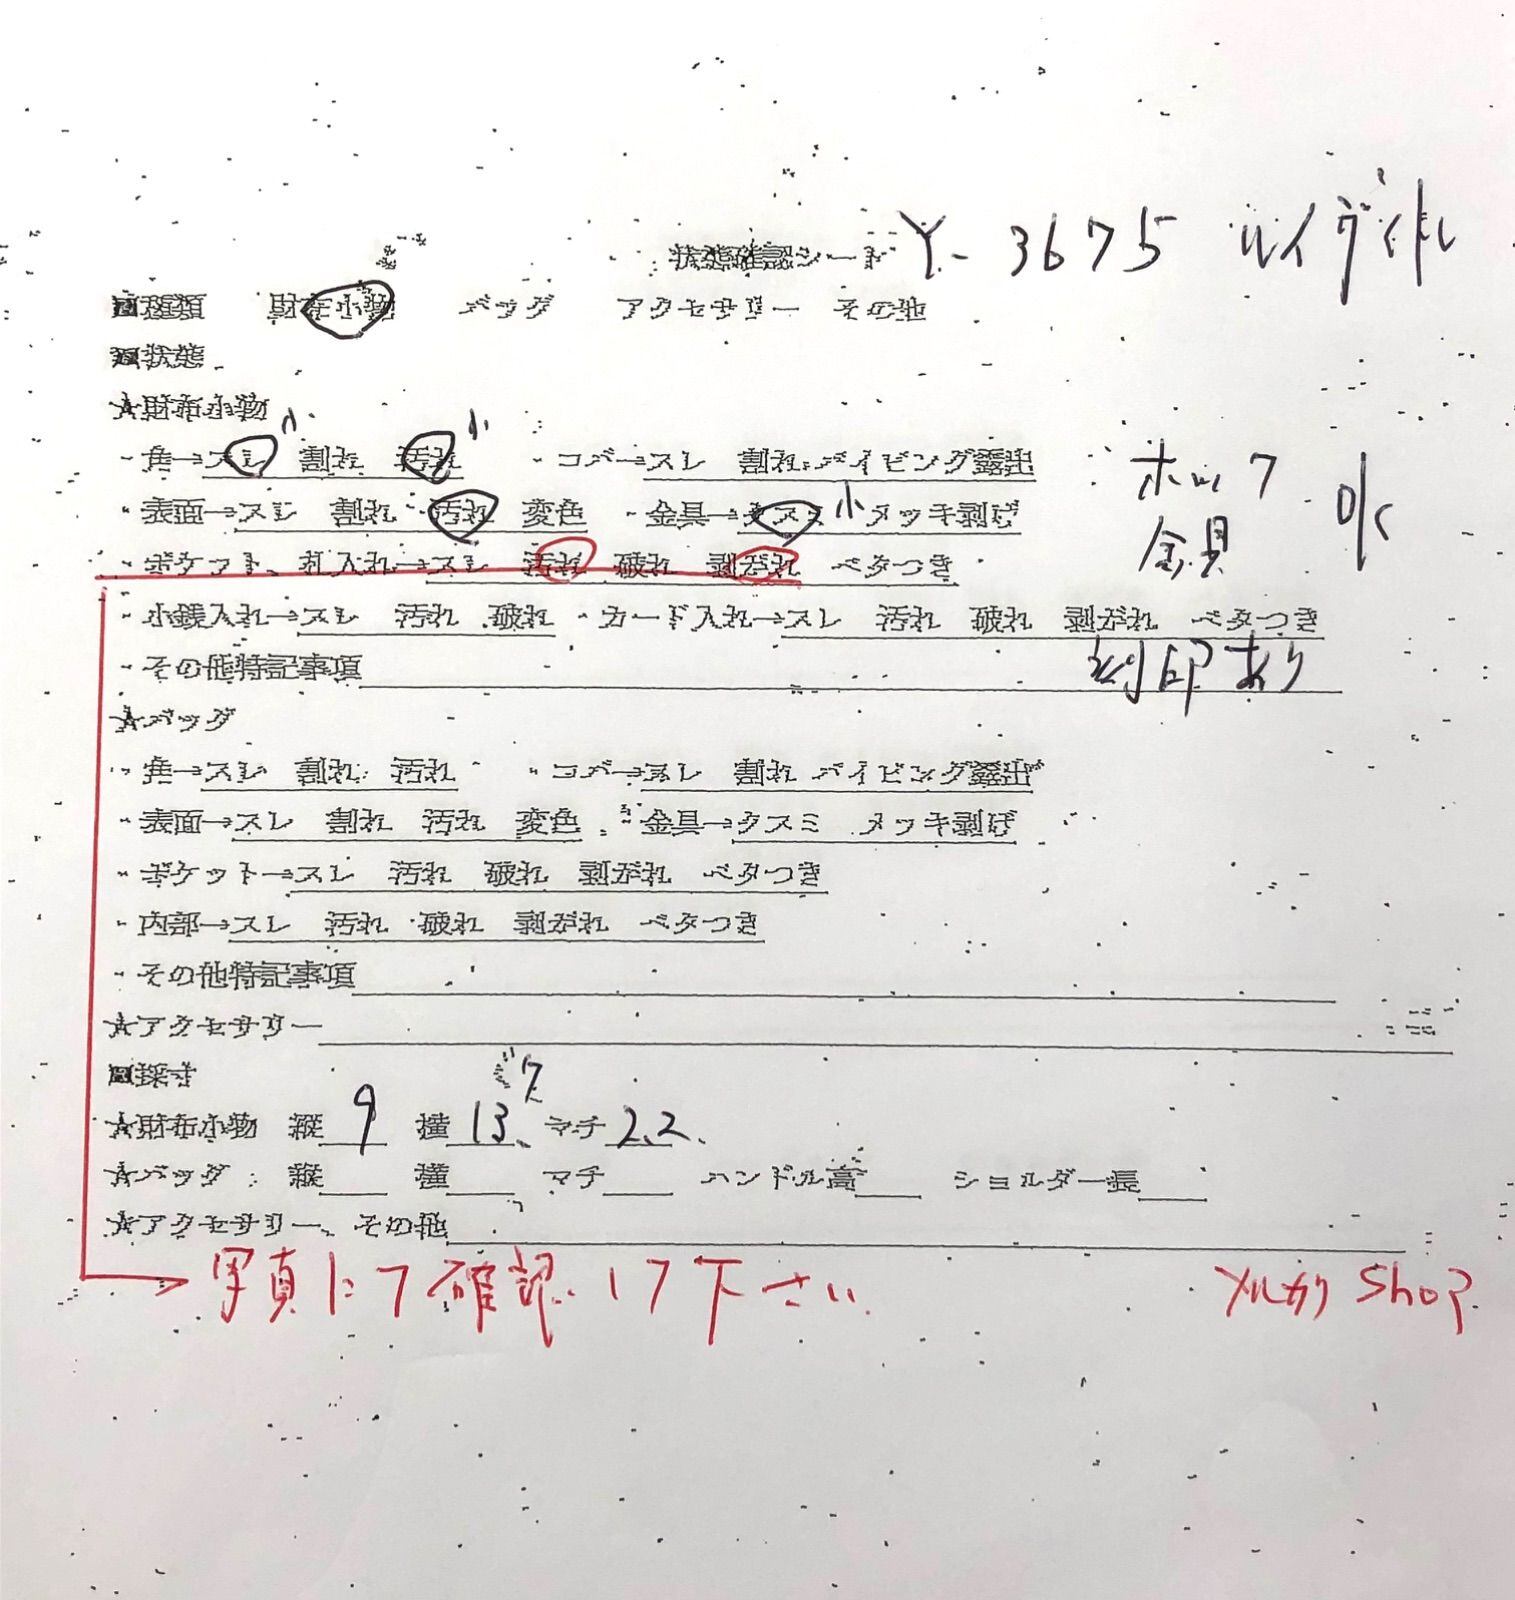 状態確認シート Y-3675 ルイヴィトル
■種類 財布小物 バッグ アクセサリー その他
■状態
★財布小物
小 小
・角→スレ 割れ 汚れ ・コバ→スレ 割れ パイピング露出
ホック OK
・表面→スレ 割れ 汚れ 変色 ・金具→クスミ 小 メッキ剥げ
金具
・ポケット、札入れ→スレ 汚れ 破れ 剥がれ ベタつき
・小銭入れ→スレ 汚れ 破れ ・カード入れ→スレ 汚れ 破れ 剥がれ ベタつき
・その他特記事項 刻印あり
★バッグ
・角→スレ 割れ 汚れ ・コバ→スレ 割れ パイピング露出
・表面→スレ 割れ 汚れ 変色 ・金具→クスミ メッキ剥げ
・ポケット→スレ 汚れ 破れ 剥がれ ベタつき
・内部→スレ 汚れ 破れ 剥がれ ベタつき
・その他特記事項
★アクセサリー
■採寸
★財布小物 縦 9 横 13.7 マチ 2.2
★バッグ 縦 横 マチ ハンドル高 ショルダー長
★アクセサリー、その他
写真にて確認して下さい メルカリ Shop